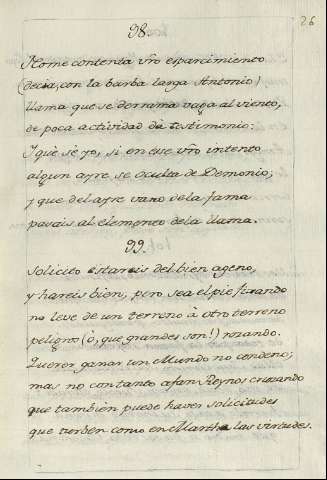 26
98.
No me contenta vr̃o esparcimiento
(decia, con la barba larga Antonio)
llama que se derrama vaga al viento,
de poca actividad dà testimonio:
Y què sè yo, si en ese vr̃o intento
algun ayre se oculta de Demonio;
y que del ayre vano de la fama
pasais al elemento de la llama.
99.
Solicito estareis del bien ageno,
y hareis bien, pero sea el pie fixando
no leve de un terreno à otro terreno
peligros (ò, que grandes son!) rozando.
Querer ganar un Mundo no condeno;
mas no con tanto afan Reynos cruzando
que tambien puede haver solicitudes
que turben como en Martha las virtudes.